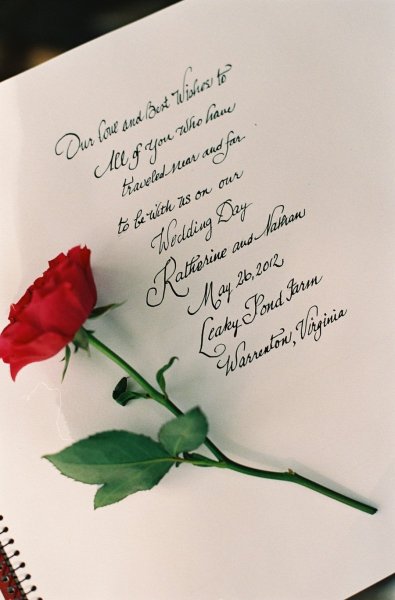 Our Love and Best Wishes to
All of You who have
traveled near and far
to be with us on our
Wedding Day
Katherine and Nathan
May 26, 2012
Leaky Pond Farm
Warrenton, Virginia